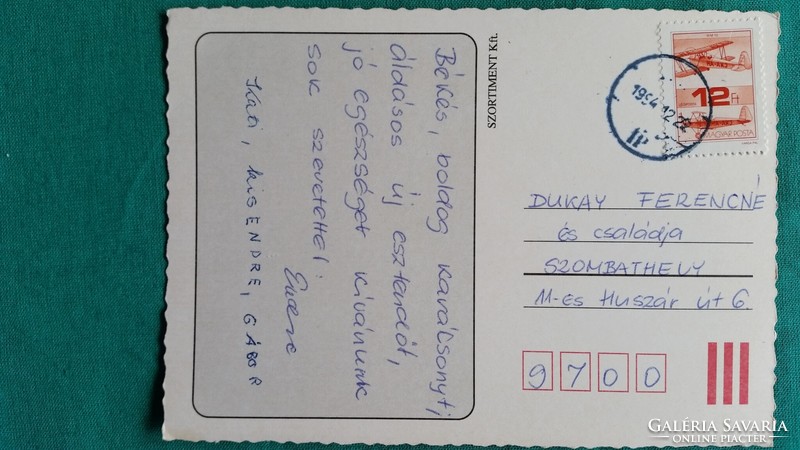 Békés, boldog karácsonyt,
áldásos új esztendőt,
jó egészséget kívánunk
sok szeretettel:
Endre
Kati, KISENDRE, GÁBOR
SZORTIMENT Kft.
12 Ft
MAGYAR POSTA
1994.12.22
DUKAY FERENCNÉ
és családja
SZOMBATHELY
11-es Huszár út 6.
9700
GALÉRIA SAVARIA
ONLINE PIACTÉR